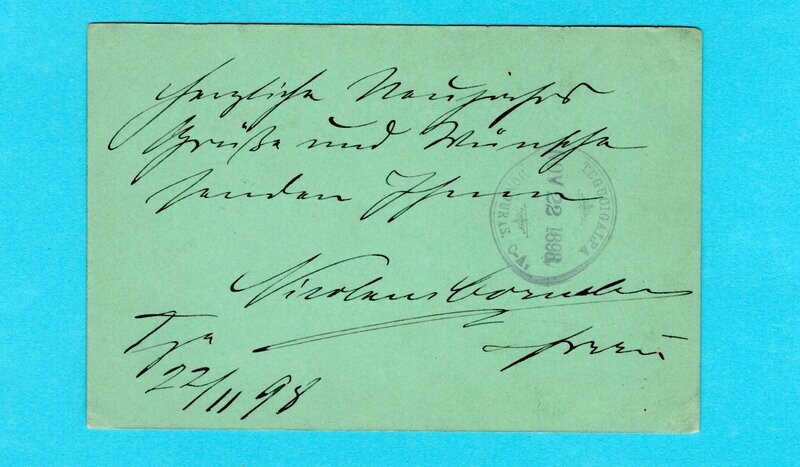 Herzliche Neujahrs
Grüße und Wünsche
senden Ihnen
Nicolaus Cornelsen
u Frau
Tga
22/11 98
TEGUCIGALPA
NOV 22 1898
HONDURAS. C-A.